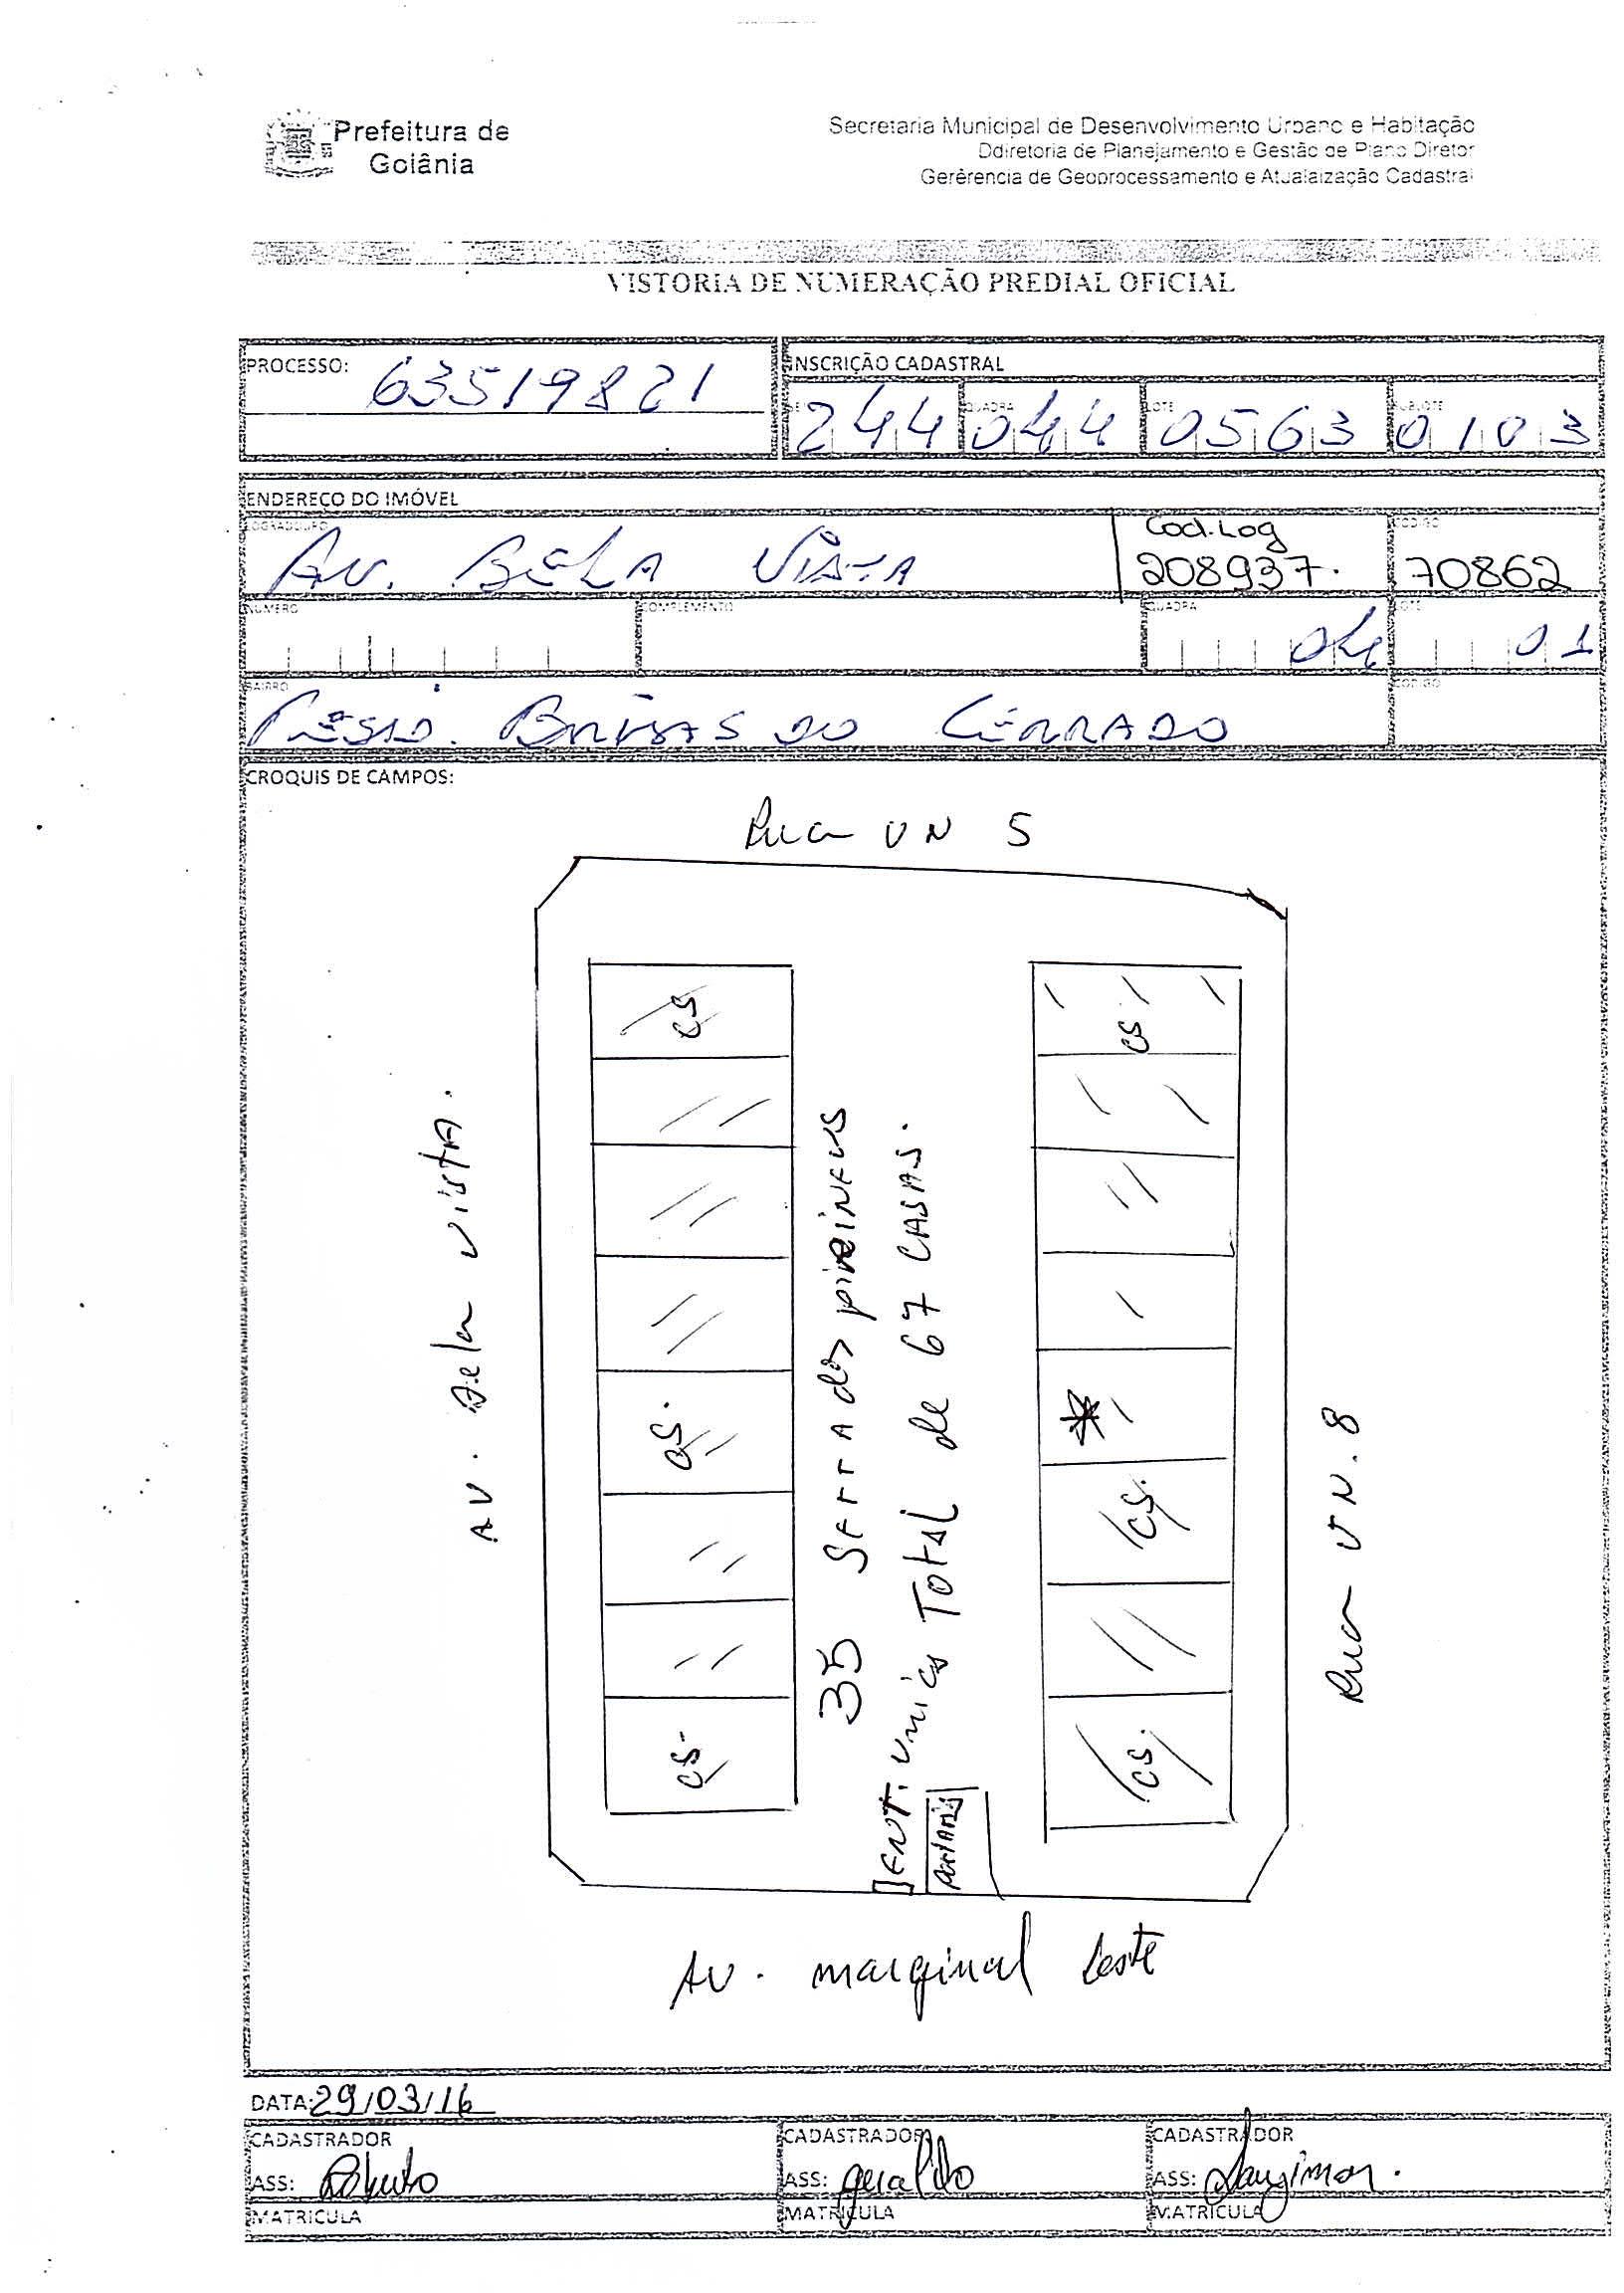 Prefeitura de
Goiânia
Secretaria Municipal de Desenvolvimento Urbano e Habitação
Ddiretoria de Planejamento e Gestão de Plano Diretor
Gerêrencia de Geoprocessamento e Atualaização Cadastral
VISTORIA DE NUMERAÇÃO PREDIAL OFICIAL
PROCESSO: 63519821
INSCRIÇÃO CADASTRAL
QUADRA LOTE SUBLOTE
244 044 0563 0103
ENDEREÇO DO IMÓVEL
LOGRADOURO Cod.Log CÓDIGO
AV. BELA VISTA 208937. 70862
NUMERO COMPLEMENTO QUADRA LOTE
04 01
BAIRRO CODIGO
RESID. BRISAS DO CERRADO
CROQUIS DE CAMPOS:
Rua VN 5
CS
CS
AV. Bela vista.
35 SERRA dos pirineus
Total de 67 CASAS.
CS.
CS.
Rua VN. 8
CS.
CS.
ENT. Unica
portaria
AV. marginal Leste
DATA: 29/03/16
CADASTRADOR CADASTRADOR CADASTRADOR
ASS: Roberto ASS: geraldo ASS:
MATRICULA MATRICULA MATRICULA